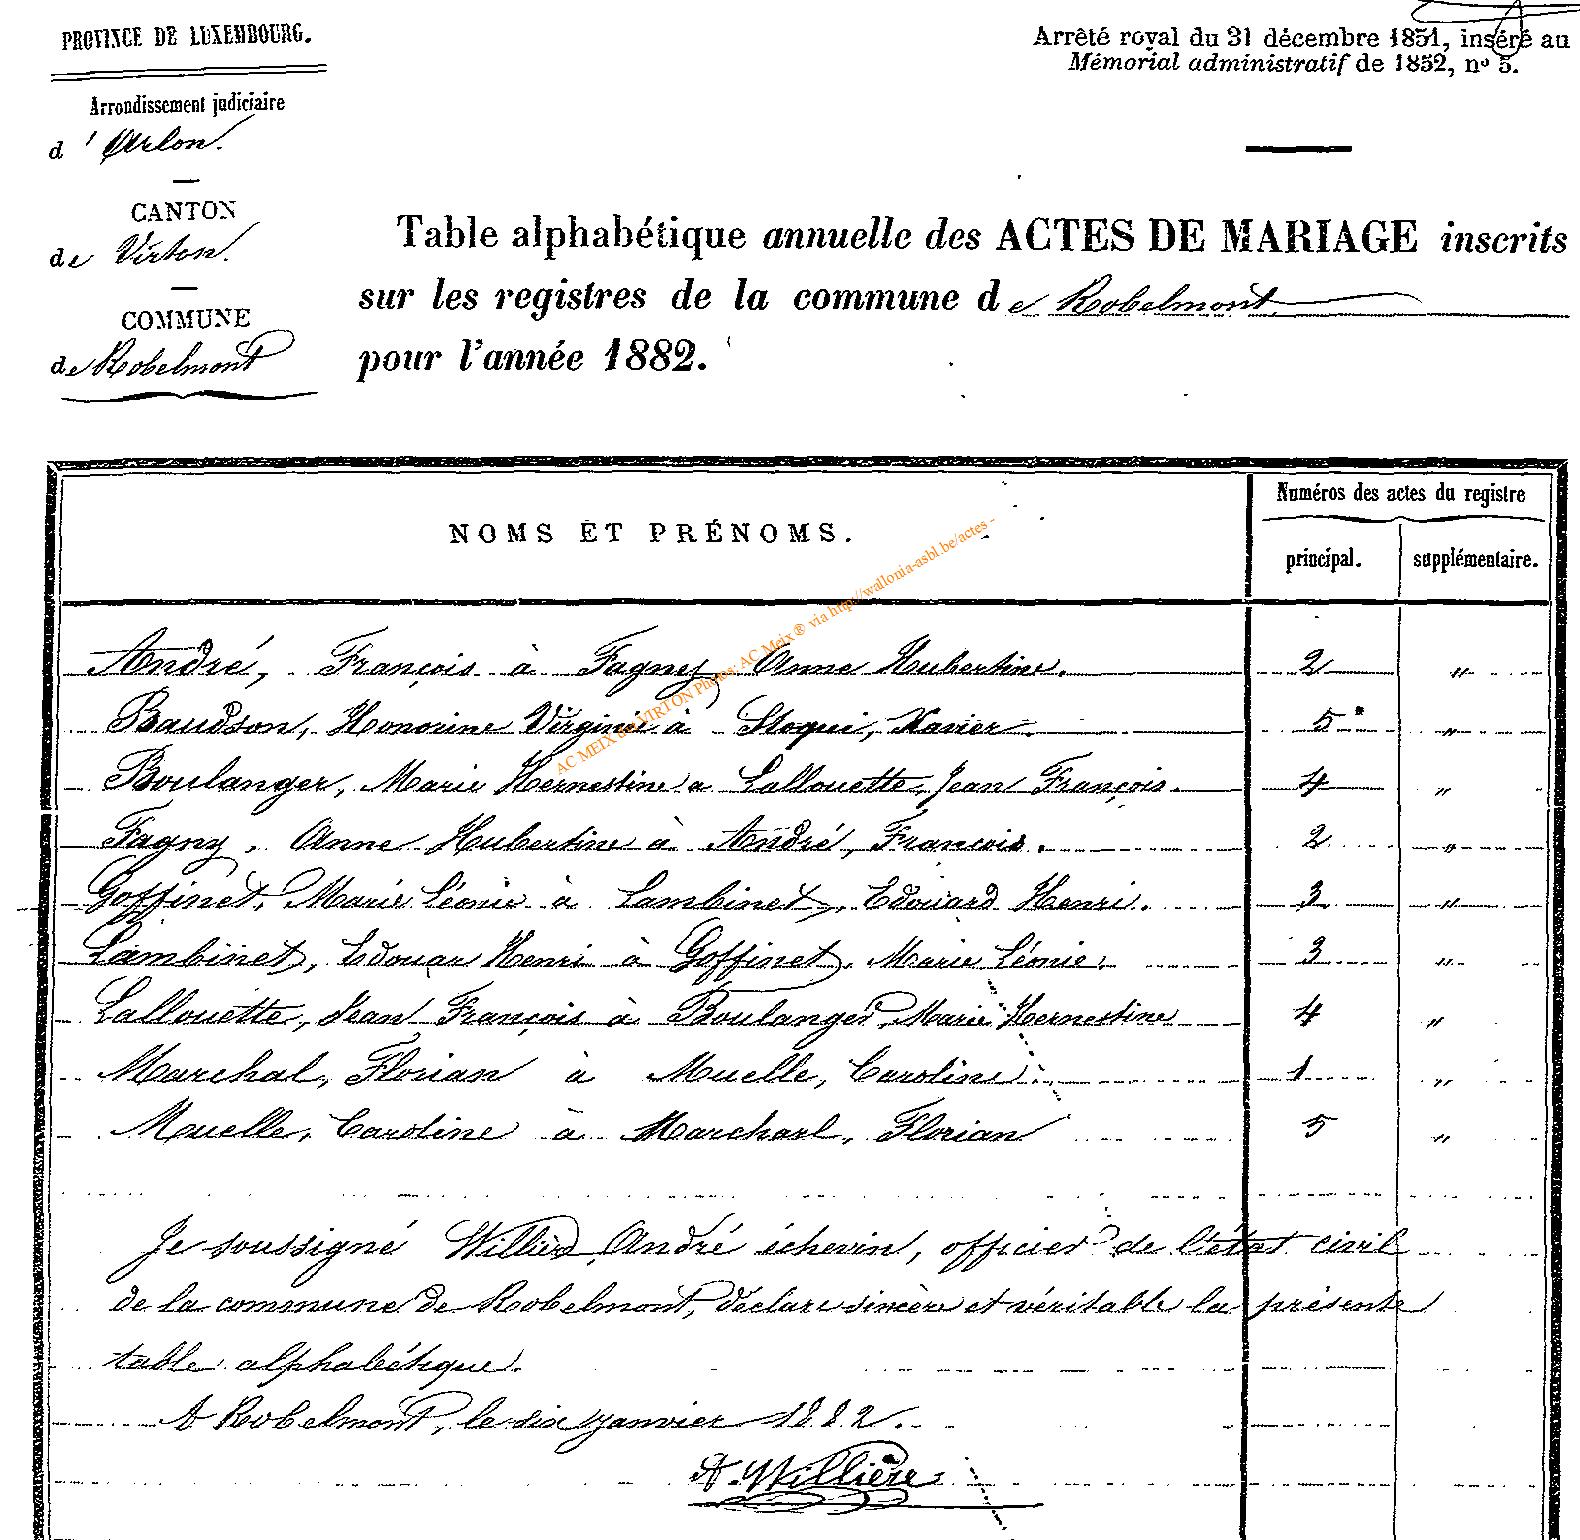 PROVINCE DE LUXEMBOURG.
Arrondissement judiciaire
d'Arlon.
CANTON
de Virton.
COMMUNE
de Robelmont
Arrêté royal du 31 décembre 1851, inséré au
Mémorial administratif de 1852, nº 5.
Table alphabétique annuelle des ACTES DE MARIAGE inscrits
sur les registres de la commune de Robelmont
pour l'année 1882.
NOMS ET PRÉNOMS.
Numéros des actes du registre
principal. supplémentaire.
André, François à Fagny Anne Hubertine. 2 "
Baudson, Honorine Virginie à Stoqui, Xavier. 5 "
Boulanger, Marie Hernestine a Lallouette, Jean François. 4 "
Fagny, Anne Hubertine à André, François. 2 "
Goffinet, Marie Léonie à Lambinet, Edouard Henri. 3 "
Lambinet, Edouar Henri à Goffinet, Marie Léonie. 3 "
Lallouette, Jean François à Boulanger, Marie Hernestine 4 "
Marchal, Florian à Muelle, Caroline 1 "
Muelle, Caroline à Marchal, Florian 5 "
Je soussigné Willière André échevin, officier de l'état civil
de la commune de Robelmont, déclare sincère et véritable la présente
table alphabétique.
A Robelmont, le six janvier 1882.
A. Willière
AC MEIX de VIRTON Photos: AC Meix ® via http://wallonia-asbl.be/actes -